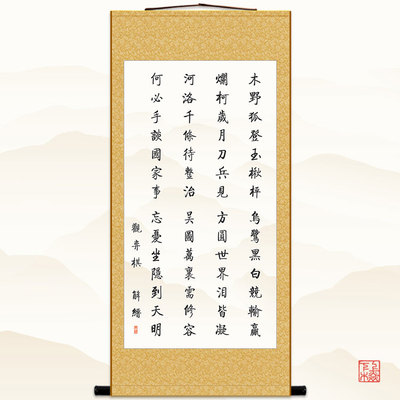 木野狐登玉楸枰烏鷺黑白競輸贏
爛柯歲月刀兵見方圓世界泪皆凝
河洛千條待整治吳國萬裏需修容
何必手談國家事忘憂坐隱到天明
觀弈棋 解縉